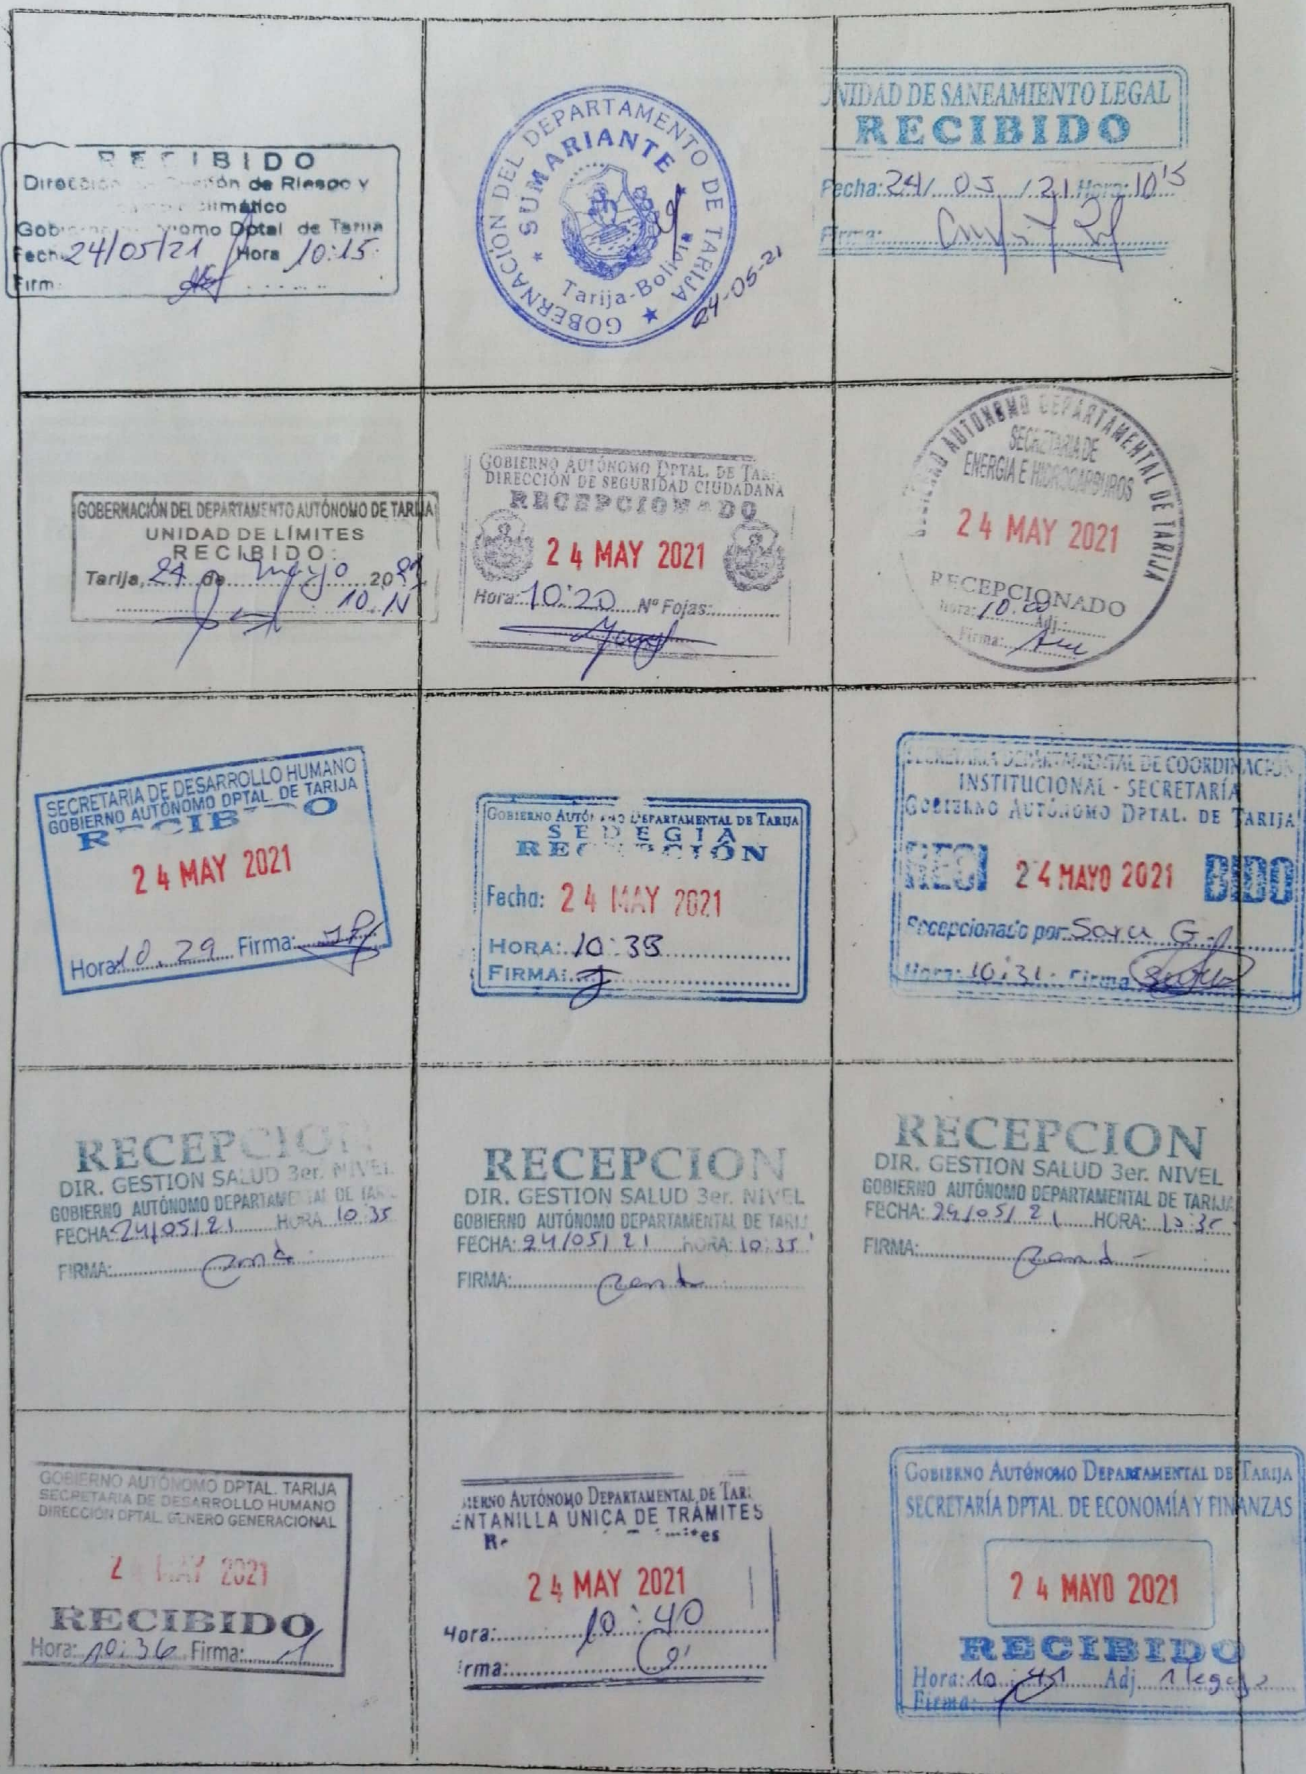 RECIBIDO
Dirección de Gestión de Riesgo y
climático
Dptal de Tarija
24/05/21 Hora 10:15
Firm
GOBERNACIÓN DEL DEPARTAMENTO DE TARIJA
SUMARIANTE
Tarija-Bolivia
24-05-21
UNIDAD DE SANEAMIENTO LEGAL
RECIBIDO
Fecha: 24/ 05 /21 Hora: 10'5
Firma:
GOBERNACIÓN DEL DEPARTAMENTO AUTÓNOMO DE TARIJA
UNIDAD DE LÍMITES
RECIBIDO:
Tarija, 24 de mayo 2021
GOBIERNO AUTÓNOMO DPTAL. DE TAR
DIRECCIÓN DE SEGURIDAD CIUDADANA
RECEPCIONADO
24 MAY 2021
Hora: 10:20 Nº Fojas:
GOBIERNO AUTONOMO DEPARTAMENTAL DE TARIJA
SECRETARIA DE
ENERGIA E HIDROCARBUROS
24 MAY 2021
RECEPCIONADO
Hora: 10:00
Adj.:
Firma:
SECRETARIA DE DESARROLLO HUMANO
GOBIERNO AUTÓNOMO DPTAL. DE TARIJA
RECIBIDO
24 MAY 2021
Hora 10.29 Firma:
GOBIERNO AUTÓNOMO DEPARTAMENTAL DE TARIJA
SEDEGIA
RECEPCIÓN
Fecha: 24 MAY 2021
HORA: 10:35
FIRMA:
SECRETARIA DEPARTAMENTAL DE COORDINACIÓN
INSTITUCIONAL - SECRETARÍA
GOBIERNO AUTÓNOMO DPTAL. DE TARIJA
RECI 24 MAYO 2021 BIDO
Recepcionado por: Sara G.
Hora: 10:31 Firma
RECEPCION
DIR. GESTION SALUD 3er. NIVEL
GOBIERNO AUTÓNOMO DEPARTAMENTAL DE TAR
FECHA: 24/05/21 HORA 10:35
FIRMA:
RECEPCION
DIR. GESTION SALUD 3er. NIVEL
GOBIERNO AUTÓNOMO DEPARTAMENTAL DE TARIJ
FECHA: 24/05/21 HORA: 10:35
FIRMA:
RECEPCION
DIR. GESTION SALUD 3er. NIVEL
GOBIERNO AUTÓNOMO DEPARTAMENTAL DE TARIJA
FECHA: 24/05/21 HORA: 10:35
FIRMA:
GOBIERNO AUTÓNOMO DPTAL. TARIJA
SECRETARIA DE DESARROLLO HUMANO
DIRECCIÓN DPTAL. GENERO GENERACIONAL
2 MAY 2021
RECIBIDO
Hora: 10:36 Firma:
IERNO AUTÓNOMO DEPARTAMENTAL DE TARI
ENTANILLA UNICA DE TRÁMITES
24 MAY 2021
Hora: 10:40
irma:
GOBIERNO AUTÓNOMO DEPARTAMENTAL DE TARIJA
SECRETARÍA DPTAL. DE ECONOMÍA Y FINANZAS
24 MAYO 2021
RECIBIDO
Hora: 10:41 Adj. 1 legajo
Firma: